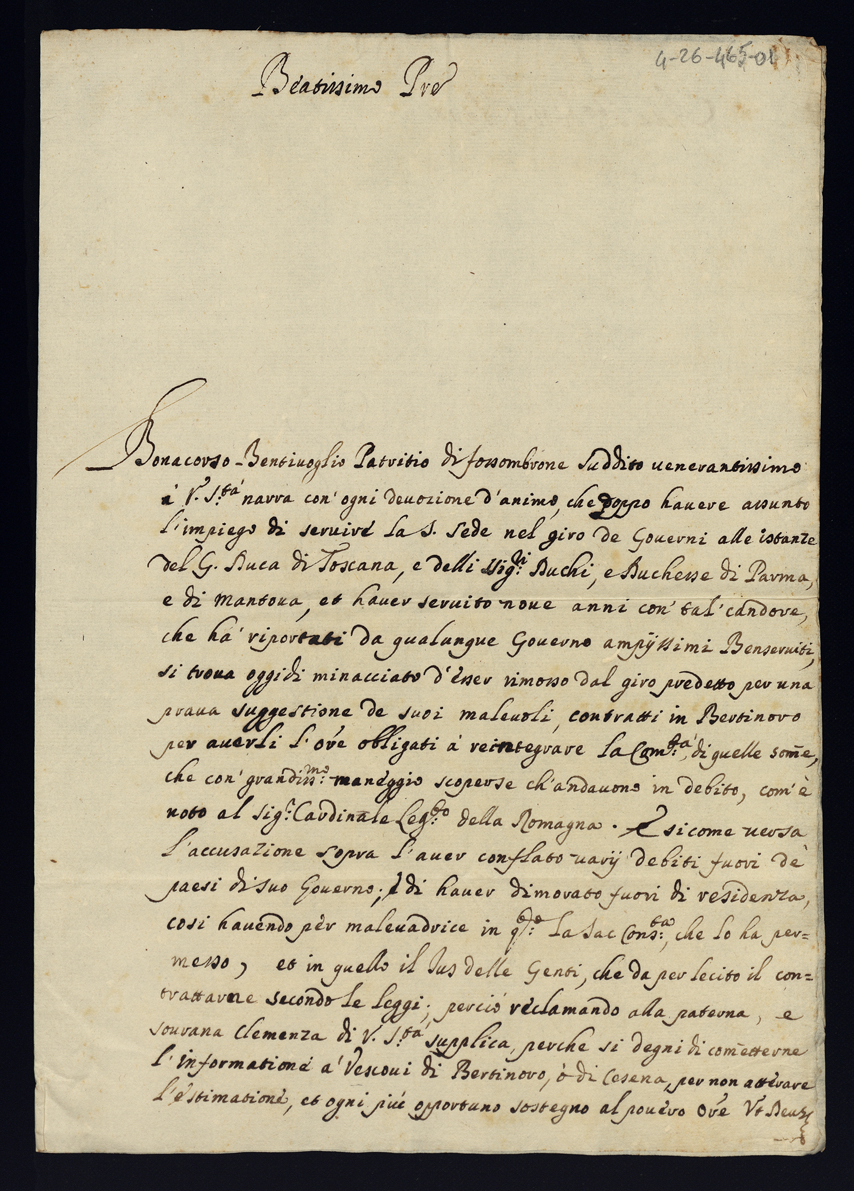 4-26-465-01
Beatissimo Pre
Bonacorso Bentivoglio Patritio di fossombrone suddito venerantissimo
à V.ª S.tà narra con' ogni devozione d'animo, che doppo havere assunto
l'impiego di servire la S. Sede nel giro de Governi alle istanze
del G. Duca di Toscana, e delli Sig.ri Duchi, e Duchesse di Parma,
e di Mantova, et haver servito nove anni con' tal' candore,
che há riportati da qualunque Governo ampijssimi Benserviti,
si trova oggidi minacciato d'esser rimosso dal giro predetto per una
prava suggestione de suoi malevoli, contratti in Bertinoro
per averli l'ore obligati á reintegrare la Com.tà, di quelle some,
che con' grandiss.mo maneggio scoperse ch'andavono in debito, com'è
noto al Sig.r Cardinale Leg.to della Romagna. E sicome versa
l'accusazione sopra l'aver conflato varij debiti fuori de
paesi di suo Governo; e di haver dimorato fuori di residenza,
cosi havendo per malevadrice in q.to la Sac Cons.ta, che lo ha per=
messo, et in quello il Jus delle Genti, che da per lecito il con=
trattarne secondo le leggi; perciò reclamando alla paterna, e
sovrana Clemenza di V. S.tà supplica, perche si degni di cometterne
l'informatione a' Vescovi di Bertinoro, ò di Cesena, per non atterare
l'estimatione, et ogni più opportuno sostegno al povero Ore Vt Deus